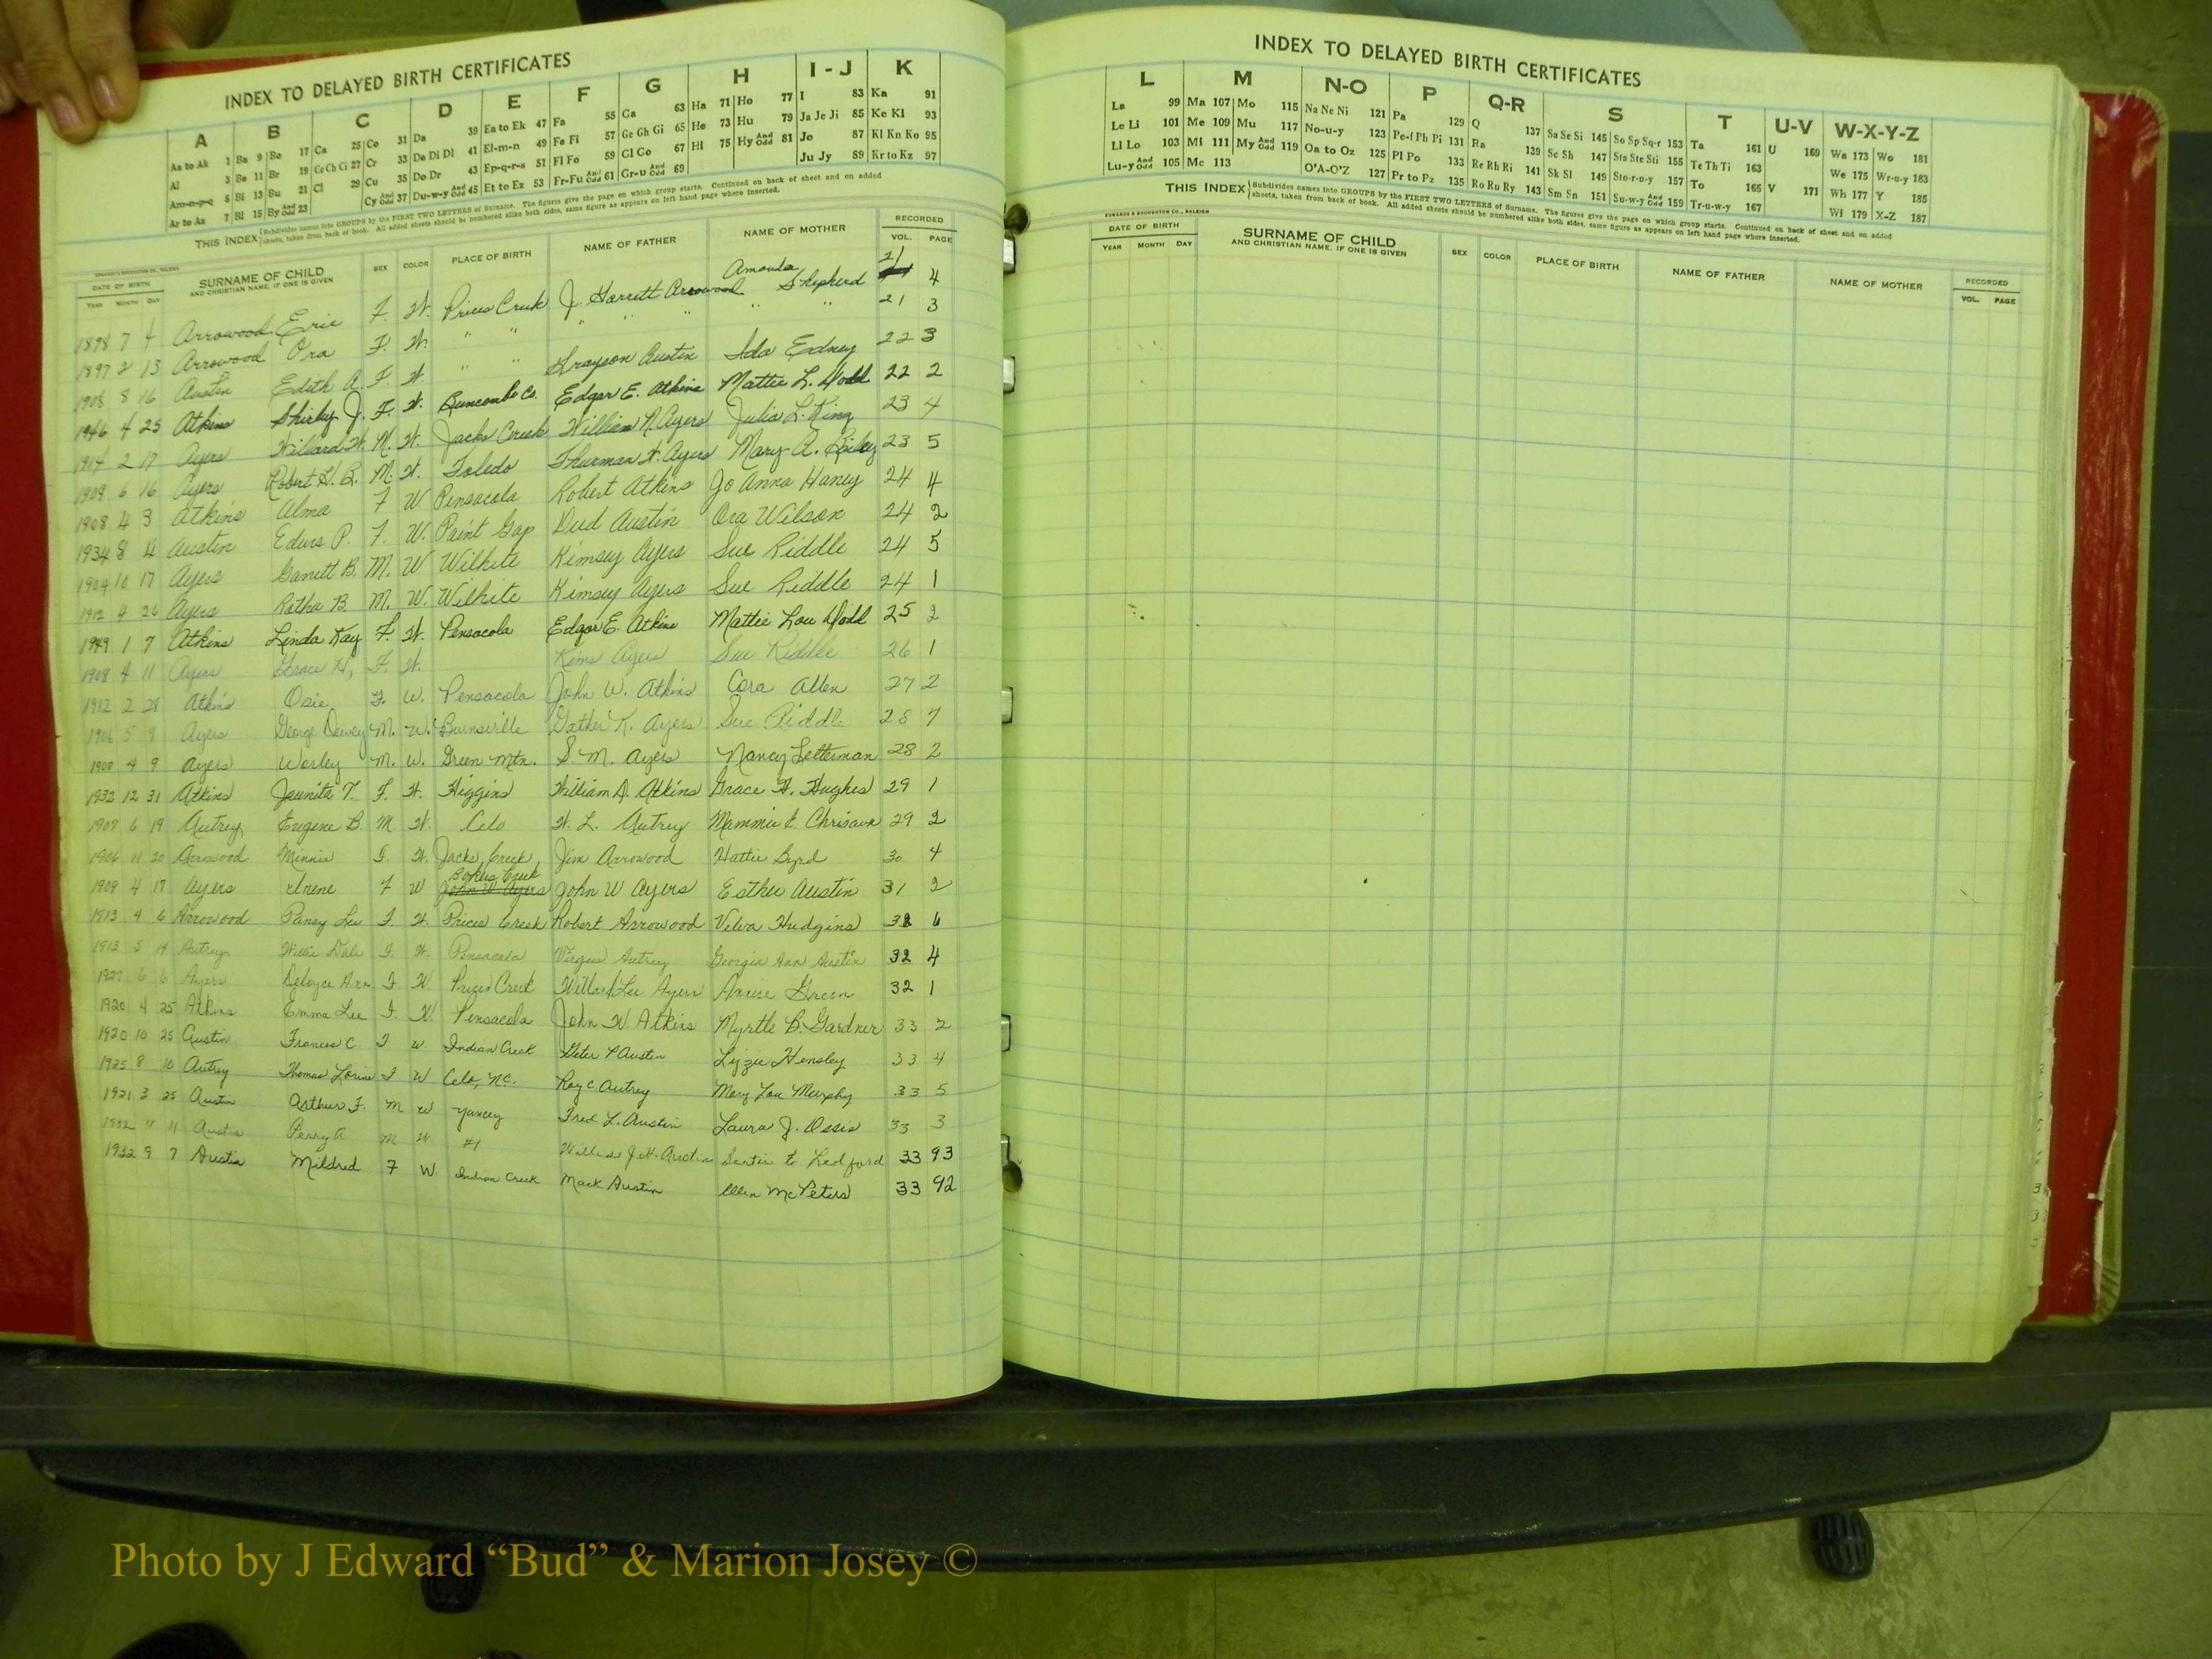 INDEX TO DELAYED BIRTH CERTIFICATES
A B C D E F G H I - J K
Aa to Ak 1 Ba 9 Bo 17 Ca 25 Co 31 Da 39 Ea to Ek 47 Fa 55 Ga 63 Ha 71 Ho 77 I 83 Ka 91
Al 3 Be 11 Br 19 Ce Ch Ci 27 Cr 33 De Di Dl 41 El-m-n 49 Fe Fi 57 Ge Gh Gi 65 He 73 Hu 79 Ja Je Ji 85 Ke Kl 93
Am-n-p-q 5 Bi 13 Bu 21 Cl 29 Cu 35 Do Dr 43 Ep-q-r-s 51 Fl Fo 59 Gl Go 67 Hi 75 Hy And Odd 81 Jo 87 Kl Kn Ko 95
Ar to Az 7 Bl 15 By And Odd 23 Cy And Odd 37 Du-w-y And Odd 45 Et to Ez 53 Fr-Fu And Odd 61 Gr-u And Odd 69 Ju Jy 89 Kr to Kz 97
THIS INDEX Subdivides names into GROUPS by the FIRST TWO LETTERS of Surname. The figures give the page on which group starts. Continued on back of sheet and on added
sheets, taken from back of book. All added sheets should be numbered alike both sides, same figure as appears on left hand page where inserted.
DATE OF BIRTH SURNAME OF CHILD SEX COLOR PLACE OF BIRTH NAME OF FATHER NAME OF MOTHER RECORDED
YEAR MONTH DAY AND CHRISTIAN NAME, IF ONE IS GIVEN VOL. PAGE
1898 7 4 Arrowood Evie F. W. Prices Creek J. Harrett Arrowood Amanda Shepherd 21 4
1897 2 13 Arrowood Ora F. W. " " " " " " " 21 3
1908 8 16 Austin Edith A. F. W. " " Grayson Austin Ada Edney 22 3
1946 4 25 Atkins Shirley J. F. W. Buncombe Co. Edgar E. Atkins Mattie L. Dodd 22 2
1914 2 17 Ayers Willard W. M. W. Jacks Creek William N. Ayers Julia L. King 23 4
1909 6 16 Ayers Robert H. B. M. W. Toledo Thurman W. Ayers Mary A. Bailey 23 5
1908 4 3 Atkins Alma F W Pensacola Robert Atkins Jo Anna Haney 24 4
1934 8 4 Austin P. F. W. Paint Gap Dud Austin Ora Wilson 24 2
1904 10 17 Ayers Garrett B. M. W Wilhite Kimsey Ayers Sue Riddle 24 5
1912 4 26 Ayers Rotha B. M. W. Wilhite Kimsey Ayers Sue Riddle 24 1
1949 1 7 Atkins Linda Kay F. W. Pensacola Edgar E. Atkins Mattie Lou Dodd 25 2
1908 4 11 Ayers Grace H, F. W. Kims Ayers Sue Riddle 26 1
1912 2 28 Atkins Osie F. W. Pensacola John W. Atkins Cora Allen 27 2
1906 5 9 Ayers George Dewey M. W. Burnsville Gather K. Ayers Sue Riddle 28 7
4 9 Ayers Wesley M. W. Green Mtn. S. M. Ayers Nancy Letterman 28 2
1932 12 31 Atkins Jaunita T. F. W. Higgins William D. Atkins Grace H. Hughes 29 1
1907 6 19 Autrey Eugene B. M W. Celo W. L. Autrey Mammie E. Chrisawn 29 2
1906 11 20 Arrowood Minnie F. W. Jacks Creek Jim Arrowood Hattie Byrd 30 4
1909 4 17 Ayers Irene F W Creek John W Ayers John W Ayers Esther Austin 31 2
1913 4 6 Arrowood Pansy Lee F. W. Prices Creek Robert Arrowood Velva Hudgins 32 6
1913 5 14 Autrey Willie Dale F. W. Pensacola Virgus Autrey Georgia Ann Austin 32 4
1927 6 6 Ayers Deloyce Ann F W Prices Creek Willard Lee Ayers Annie Green 32 1
1920 4 25 Atkins Emma Lee F. W. Pensacola John W Atkins Myrtle B. Gardner 33 2
1920 10 25 Austin Frances C. F W Indian Creek Peter P Austin Lizzie Hensley 33 4
1925 8 10 Autrey Thomas F W Celo, N.C. Roy C Autrey Mary Lou Murphy 33 5
1921 3 25 Austin Arthur F. M W Yancey Fred L. Austin Laura J. 33 3
11 Austin Perry A M W #1 J.H. Austin Ledford 33 93
1932 9 7 Austin Mildred F W Indian Creek Mack Austin Ellen McPeters 33 92
INDEX TO DELAYED BIRTH CERTIFICATES
L M N-O P Q-R S T U-V W-X-Y-Z
La 99 Ma 107 Mo 115 Na Ne Ni 121 Pa 129 Q 137 Sa Se Si 145 So Sp Sq-r 153 Ta 161 U 169 Wa 173 Wo 181
Le Li 101 Me 109 Mu 117 No-u-y 123 Pe-f Ph Pi 131 Ra 139 Sc Sh 147 Sta Ste Sti 155 Te Th Ti 163 We 175 Wr-u-y 183
Ll Lo 103 Mi 111 My And Odd 119 Oa to Oz 125 Pl Po 133 Re Rh Ri 141 Sk Sl 149 Sto-r-u-y 157 To 165 V 171 Wh 177 Y 185
Lu-y And Odd 105 Mc 113 O'A-O'Z 127 Pr to Pz 135 Ro Ru Ry 143 Sm Sn 151 Su-w-y And Odd 159 Tr-u-w-y 167 Wi 179 X-Z 187
THIS INDEX Subdivides names into GROUPS by the FIRST TWO LETTERS of Surname. The figures give the page on which group starts. Continued on back of sheet and on added
sheets, taken from back of book. All added sheets should be numbered alike both sides, same figure as appears on left hand page where inserted.
EDWARDS & BROUGHTON CO., RALEIGH
DATE OF BIRTH SURNAME OF CHILD SEX COLOR PLACE OF BIRTH NAME OF FATHER NAME OF MOTHER RECORDED
YEAR MONTH DAY AND CHRISTIAN NAME, IF ONE IS GIVEN VOL. PAGE
Photo by J Edward “Bud” & Marion Josey ©